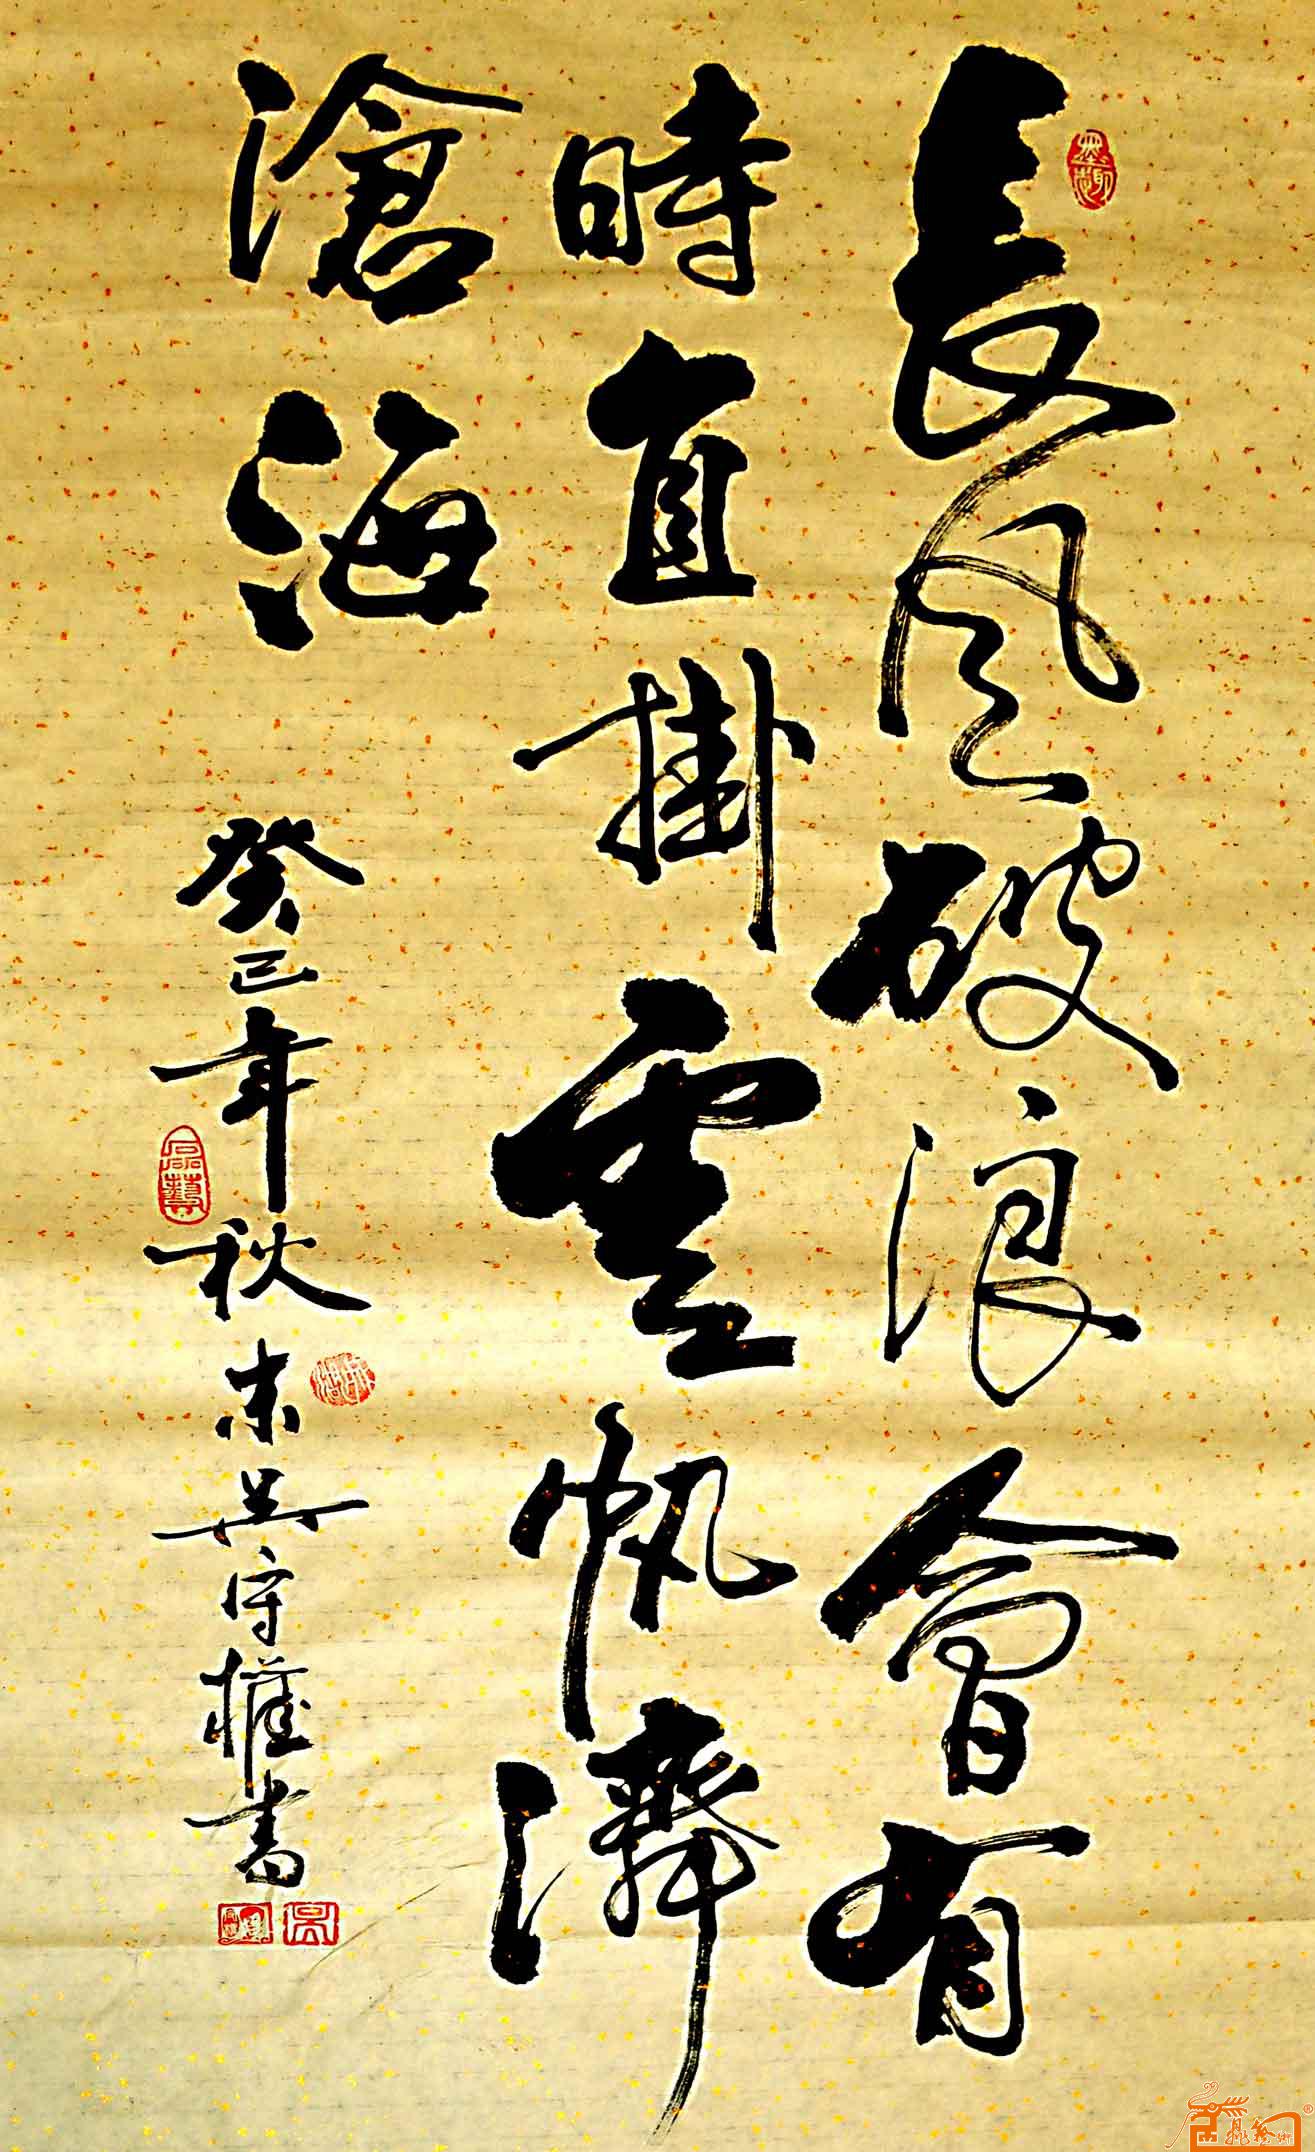 長風破浪會有
時直掛雲帆濟
滄海
癸巳年秋末吳守權書